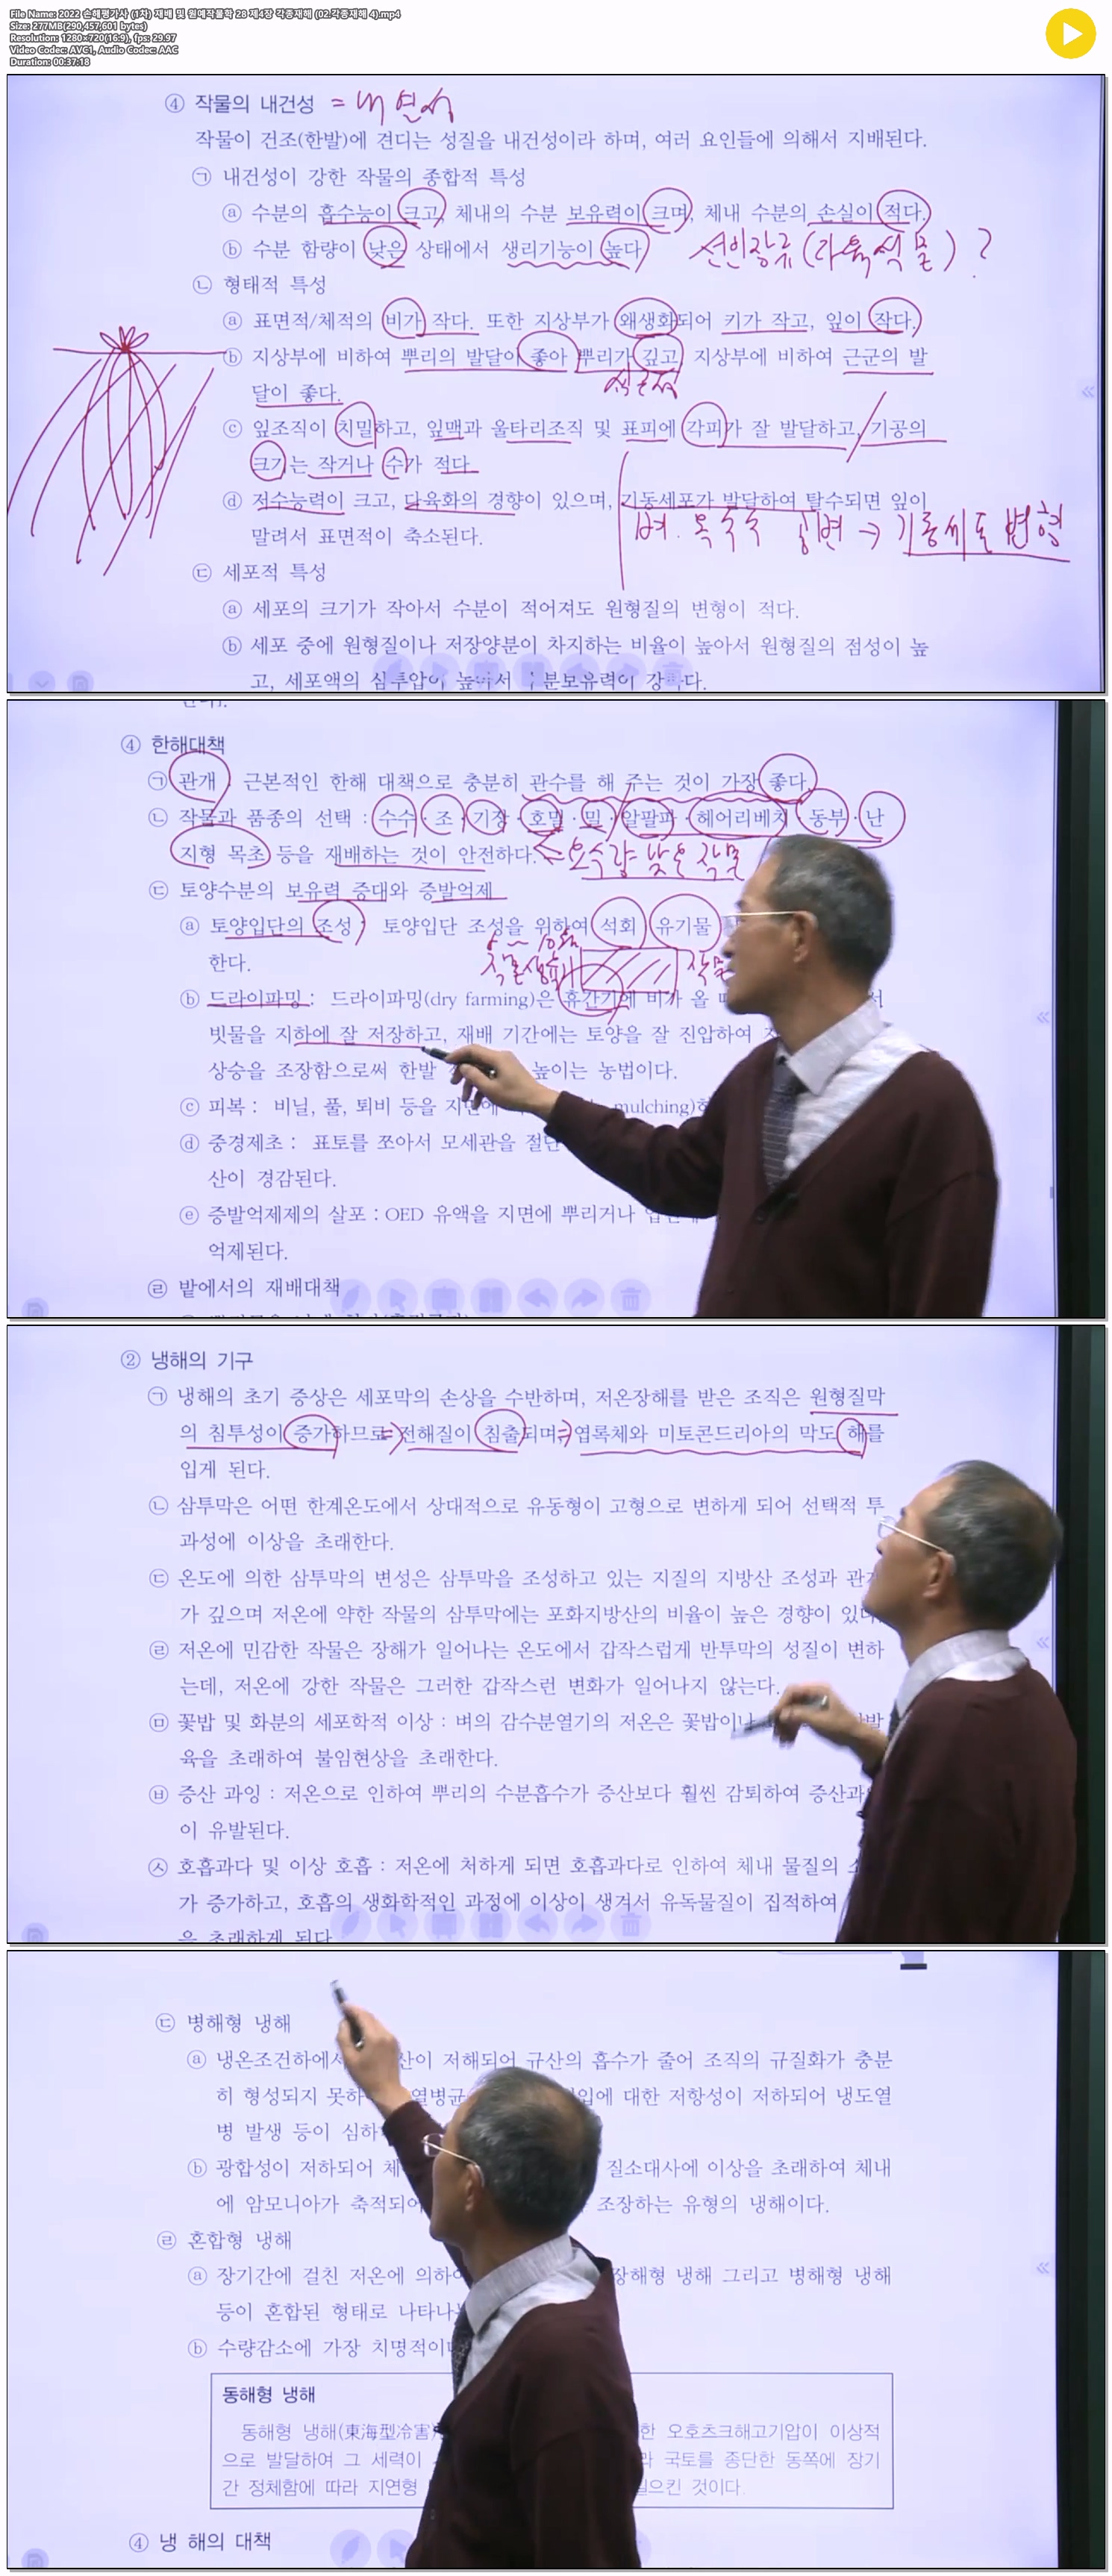 File Name: 2022 손해평가사 (1차) 재배 및 원예작물학 28 제4장 각종재해 (02.각종재해 4).mp4
Size: 277MB(290,457,601 bytes)
Resolution: 1280×720(16:9), fps: 29.97
Video Codec: AVC1, Audio Codec: AAC
Duration: 00:37:18
④ 작물의 내건성 = 내한성
작물이 건조(한발)에 견디는 성질을 내건성이라 하며, 여러 요인들에 의해서 지배된다.
㉠ 내건성이 강한 작물의 종합적 특성
ⓐ 수분의 흡수능이 크고, 체내의 수분 보유력이 크며, 체내 수분의 손실이 적다.
ⓑ 수분 함량이 낮은 상태에서 생리기능이 높다.
선인장류(다육식물)?
㉡ 형태적 특성
ⓐ 표면적/체적의 비가 작다. 또한 지상부가 왜생화되어 키가 작고, 잎이 작다.
ⓑ 지상부에 비하여 뿌리의 발달이 좋아 뿌리가 깊고, 지상부에 비하여 근군의 발
달이 좋다.
심근성
ⓒ 잎조직이 치밀하고, 잎맥과 울타리조직 및 표피에 각피가 잘 발달하고, 기공의
크기는 작거나 수가 적다.
ⓓ 저수능력이 크고, 다육화의 경향이 있으며, 기동세포가 발달하여 탈수되면 잎이
말려서 표면적이 축소된다.
벼. 옥수수 → 기동세포 변형
㉢ 세포적 특성
ⓐ 세포의 크기가 작아서 수분이 적어져도 원형질의 변형이 적다.
ⓑ 세포 중에 원형질이나 저장양분이 차지하는 비율이 높아서 원형질의 점성이 높
고, 세포액의 삼투압이 높아서 수분보유력이 강하다.
④ 한해대책
㉠ 관개 : 근본적인 한해 대책으로 충분히 관수를 해 주는 것이 가장 좋다.
㉡ 작물과 품종의 선택 : 수수·조·기장·호밀·밀·알팔파·헤어리베치·동부·난
지형 목초 등을 재배하는 것이 안전하다. < 요수량 낮은 작물
㉢ 토양수분의 보유력 증대와 증발억제
ⓐ 토양입단의 조성 : 토양입단 조성을 위하여 석회 유기물
한다.
ⓑ 드라이파밍 : 드라이파밍(dry farming)은 휴간기에 비가 올
빗물을 지하에 잘 저장하고, 재배 기간에는 토양을 잘 진압하여
상승을 조장함으로써 한발 높이는 농법이다.
ⓒ 피복 : 비닐, 풀, 퇴비 등을 지면에 mulching)
ⓓ 중경제초 : 표토를 쪼아서 모세관을 절단
산이 경감된다.
ⓔ 증발억제제의 살포 : OED 유액을 지면에 뿌리거나
억제된다.
㉣ 밭에서의 재배대책
② 냉해의 기구
㉠ 냉해의 초기 증상은 세포막의 손상을 수반하며, 저온장해를 받은 조직은 원형질막
의 침투성이 증가하므로 전해질이 침출되며 엽록체와 미토콘드리아의 막도 해를
입게 된다.
㉡ 삼투막은 어떤 한계온도에서 상대적으로 유동형이 고형으로 변하게 되어 선택적 투
과성에 이상을 초래한다.
㉢ 온도에 의한 삼투막의 변성은 삼투막을 조성하고 있는 지질의 지방산 조성과 관계
가 깊으며 저온에 약한 작물의 삼투막에는 포화지방산의 비율이 높은 경향이 있다.
㉣ 저온에 민감한 작물은 장해가 일어나는 온도에서 갑작스럽게 반투막의 성질이 변하
는데, 저온에 강한 작물은 그러한 갑작스런 변화가 일어나지 않는다.
㉤ 꽃밥 및 화분의 세포학적 이상 : 벼의 감수분열기의 저온은 꽃밥이나
육을 초래하여 불임현상을 초래한다.
㉥ 증산 과잉 : 저온으로 인하여 뿌리의 수분흡수가 증산보다 훨씬 감퇴하여 증산과
이 유발된다.
㉦ 호흡과다 및 이상 호흡 : 저온에 처하게 되면 호흡과다로 인하여 체내 물질의
가 증가하고, 호흡의 생화학적인 과정에 이상이 생겨서 유독물질이 집적하여
을 초래하게 된다
㉢ 병해형 냉해
ⓐ 냉온조건하에서 산이 저해되어 규산의 흡수가 줄어 조직의 규질화가 충분
히 형성되지 못하 열병균 입에 대한 저항성이 저하되어 냉도열
병 발생 등이 심하
ⓑ 광합성이 저하되어 체 질소대사에 이상을 초래하여 체내
에 암모니아가 축적되어 조장하는 유형의 냉해이다.
㉣ 혼합형 냉해
ⓐ 장기간에 걸친 저온에 의하여 장해형 냉해 그리고 병해형 냉해
등이 혼합된 형태로 나타나는
ⓑ 수량감소에 가장 치명적이다
동해형 냉해
동해형 냉해(東海型冷害) 한 오호츠크해고기압이 이상적
으로 발달하여 그 세력이 국토를 종단한 동쪽에 장기
간 정체함에 따라 지연형 일으킨 것이다.
④ 냉 해의 대책